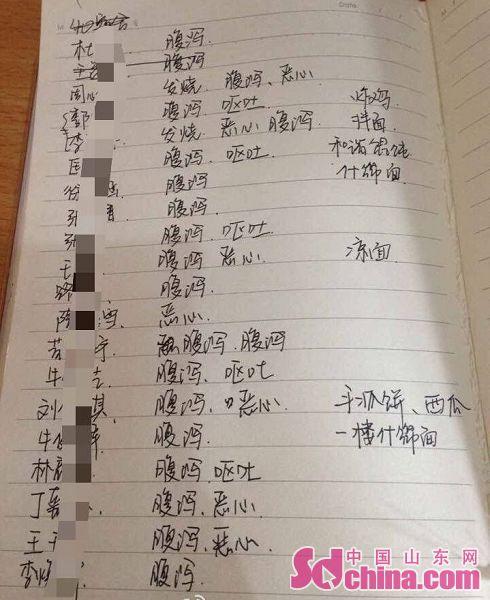 Date
杜 腹泻
王 腹泻
周 发烧 腹泻、恶心
郭 腹泻 呕吐 炸鸡
李 发烧 恶心 腹泻 拌面
腹泻 呕吐 和谐馄饨
腹泻 什锦面
张 腹泻
张 腹泻 呕吐
王 腹泻 恶心 凉面
腹泻
陈 恶心
腹泻、腹泻
牛 腹泻、呕吐
刘 其 腹泻、恶心 手抓饼、西瓜
牛 腹泻 一楼什锦面
林 腹泻、呕吐
丁 腹泻、恶心
王 腹泻、恶心
李 腹泻
中国山东网
Sdchina.com